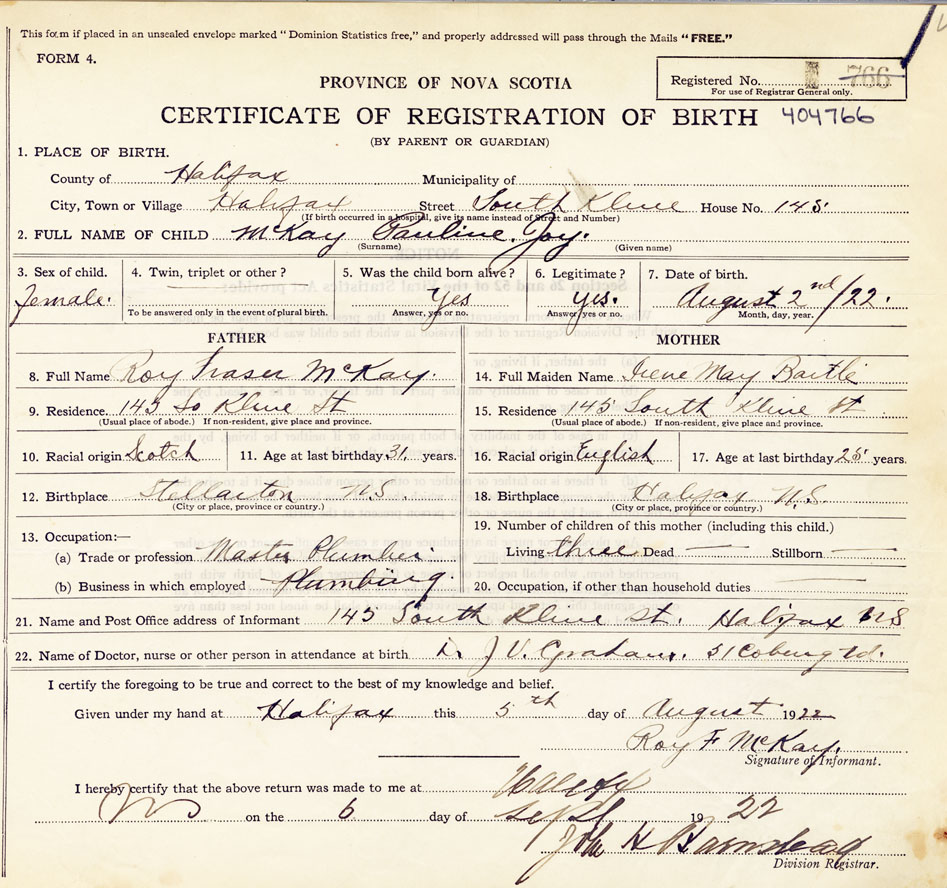 This form if placed in an unsealed envelope marked "Dominion Statistics free," and properly addressed will pass through the Mails "FREE."
FORM 4.
Registered No. 766
For use of Registrar General only.
PROVINCE OF NOVA SCOTIA
CERTIFICATE OF REGISTRATION OF BIRTH 404766
(BY PARENT OR GUARDIAN)
1. PLACE OF BIRTH.
County of Halifax Municipality of
City, Town or Village Halifax Street South Kline House No. 145
(If birth occurred in a hospital, give its name instead of Street and Number)
2. FULL NAME OF CHILD McKay Pauline Joy.
(Surname) (Given name)
3. Sex of child. 4. Twin, triplet or other? 5. Was the child born alive? 6. Legitimate? 7. Date of birth.
female. Yes Yes. August 2nd/22.
To be answered only in the event of plural birth. Answer, yes or no. Answer, yes or no. Month, day, year.
FATHER
8. Full Name Roy Fraser McKay.
9. Residence. 145 So Kline St
(Usual place of abode.) If non-resident, give place and province.
10. Racial origin Scotch 11. Age at last birthday 31. years.
12. Birthplace Stellarton NS
(City or place, province or country.)
13. Occupation:—
(a) Trade or profession Master Plumber.
(b) Business in which employed Plumbing.
MOTHER
14. Full Maiden Name Irene May Bartle
15. Residence 145 South Kline St
(Usual place of abode.) If non-resident, give place and province.
16. Racial origin English 17. Age at last birthday 25 years.
18. Birthplace Halifax N.S.
(City or place, province or country.)
19. Number of children of this mother (including this child.)
Living three Dead — Stillborn —
20. Occupation, if other than household duties
21. Name and Post Office address of Informant 145 South Kline St. Halifax NS
22. Name of Doctor, nurse or other person in attendance at birth Dr. J V. Graham. 51 Coburg Rd.
I certify the foregoing to be true and correct to the best of my knowledge and belief.
Given under my hand at Halifax this 5th day of August 1922
Roy F McKay.
Signature of Informant.
I hereby certify that the above return was made to me at Halifax
NS on the 6 day of Sept 1922
John H Barnstead
Division Registrar.